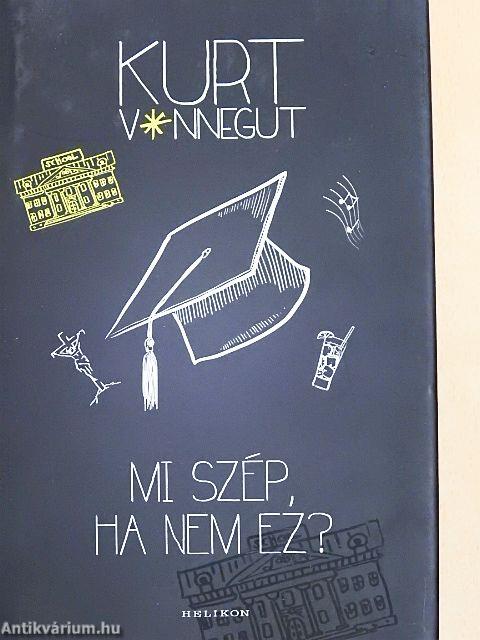 KURT
V*NNEGUT
SCHOOL
MI SZÉP,
HA NEM EZ?
HELIKON
Antikvárium.hu